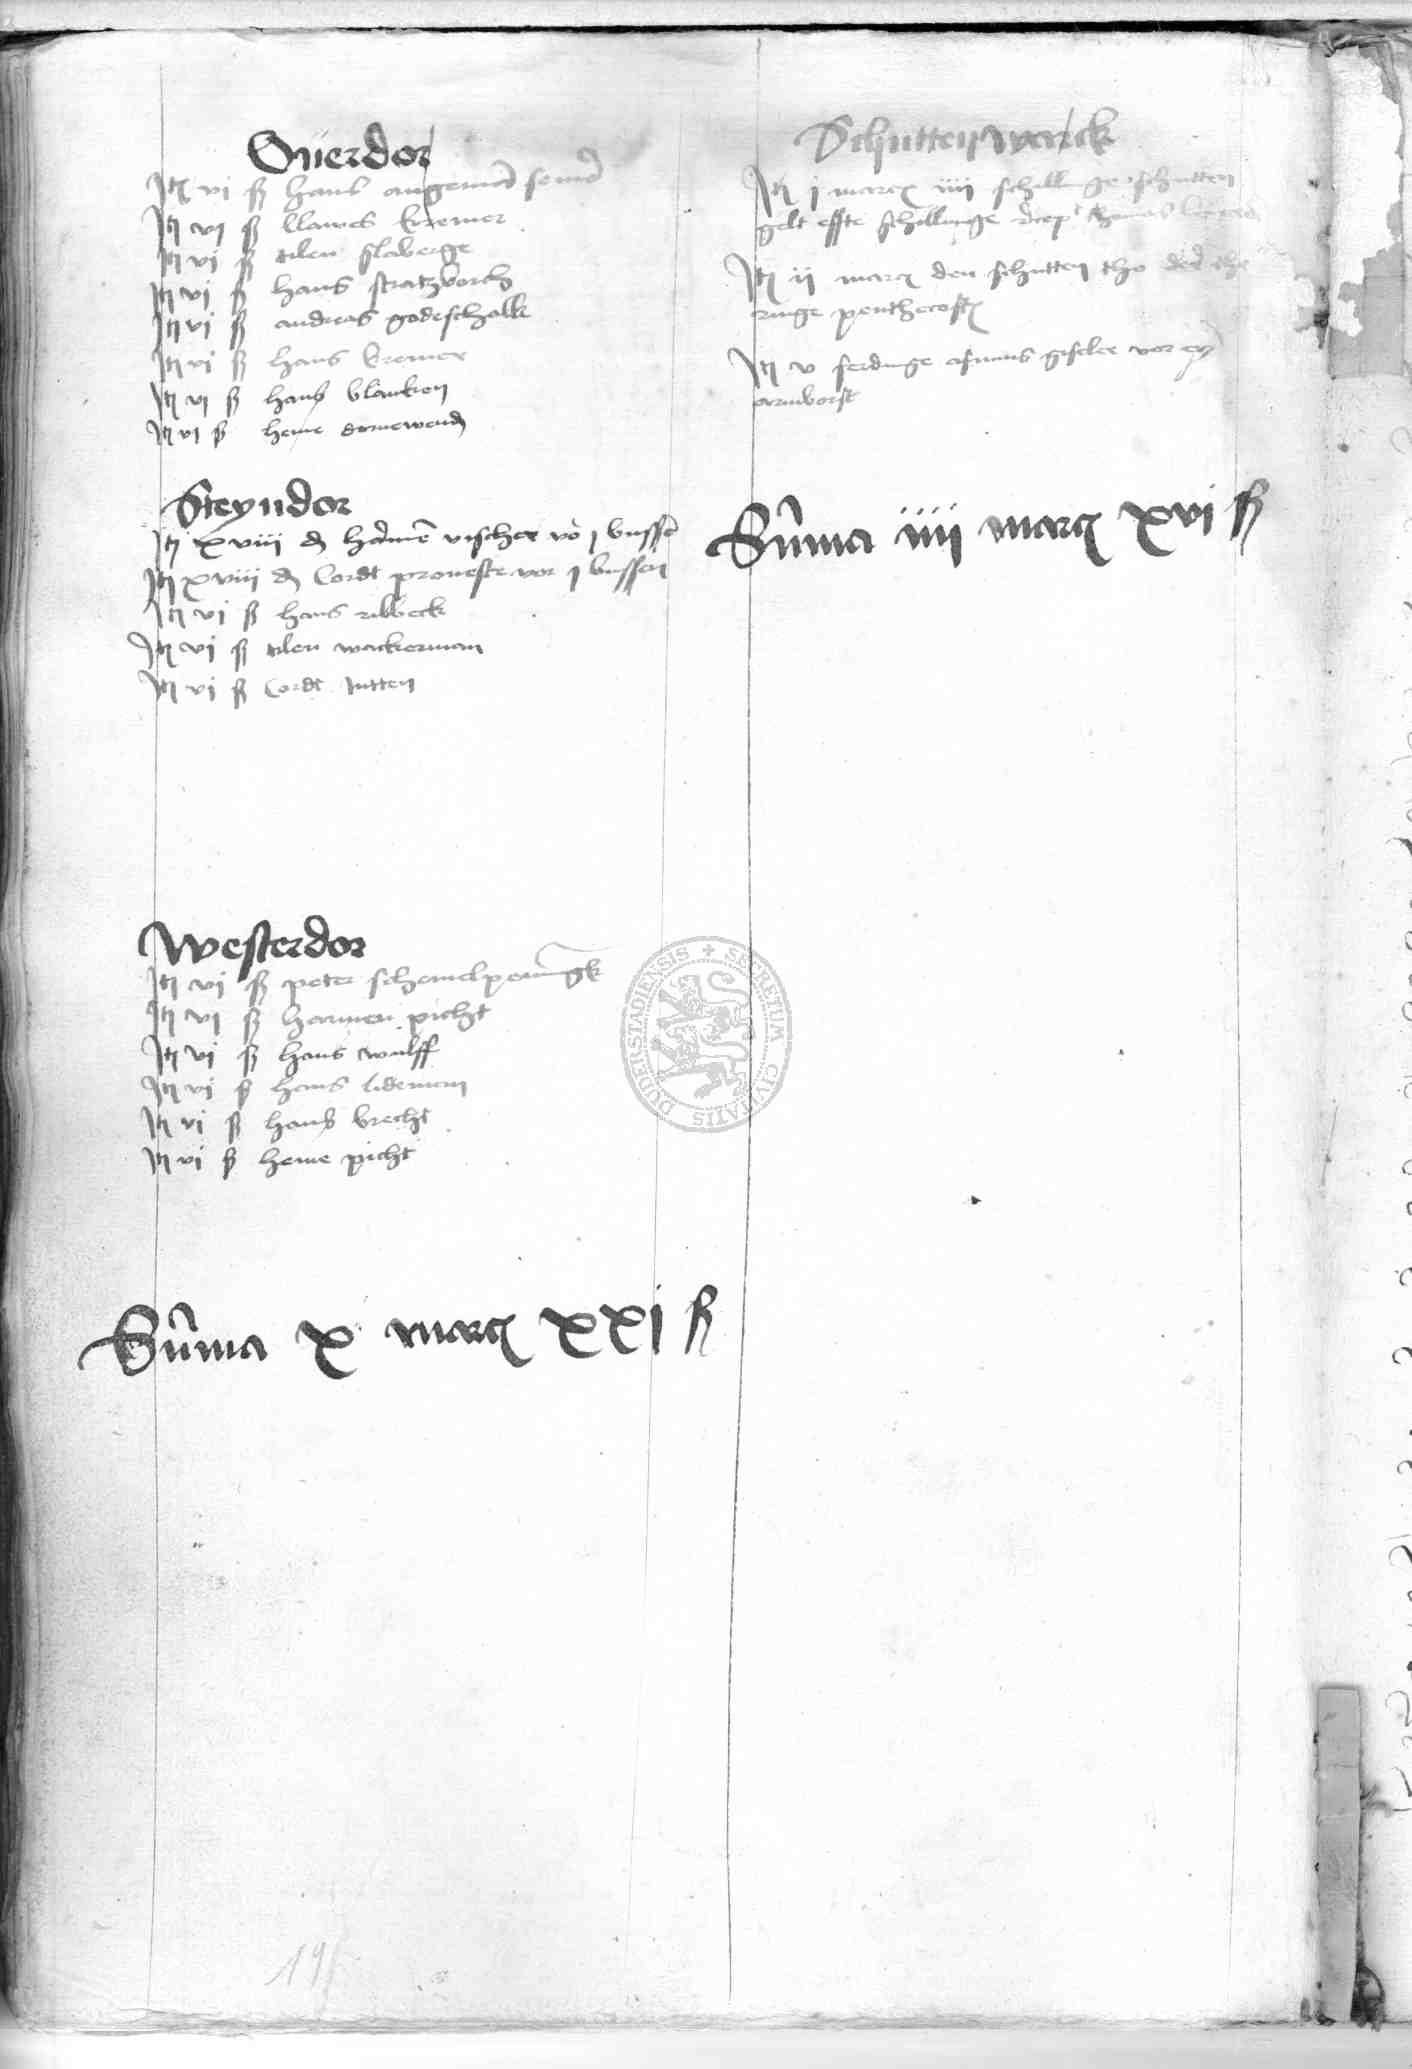 Ouerdor
Itē vi ß hans
Itē vi ß klawes kremer
Itē vi ß tilen slaberge
Itē vi ß hans stratzborch
Itē vi ß andreas godeschalk
Itē vi ß hans kremer
Itē vi ß hans blanken
Itē vi ß heine dornewend
Steyndor
Itē xviii d vischer vor j busse
Itē xviii d Cordt proueste vor j bussen
Itē vi ß hans ribbeck
Itē vi ß tilen wackerman
Itē vi ß Cordt Jutten
Westerdor
Itē vi ß peter schemelpennigk
Itē vi ß harmen picht
Itē vi ß hans wulff
Itē vi ß hans lidemann
Itē vi ß hans brecht
Itē vi ß heine picht
Sūma x marc xxi ß
Schutten werck
Itē j marc iiii schillinge schutten
gelt effte schillinge recept thomas
Itē ii marc den schutten tho
ringe penthecoste
Itē v ferdinge asmus giseler vor eyn
armborst
Sūma iiii marc xvi ß
SECRETUM CIVITATIS DUDERSTADIENSIS